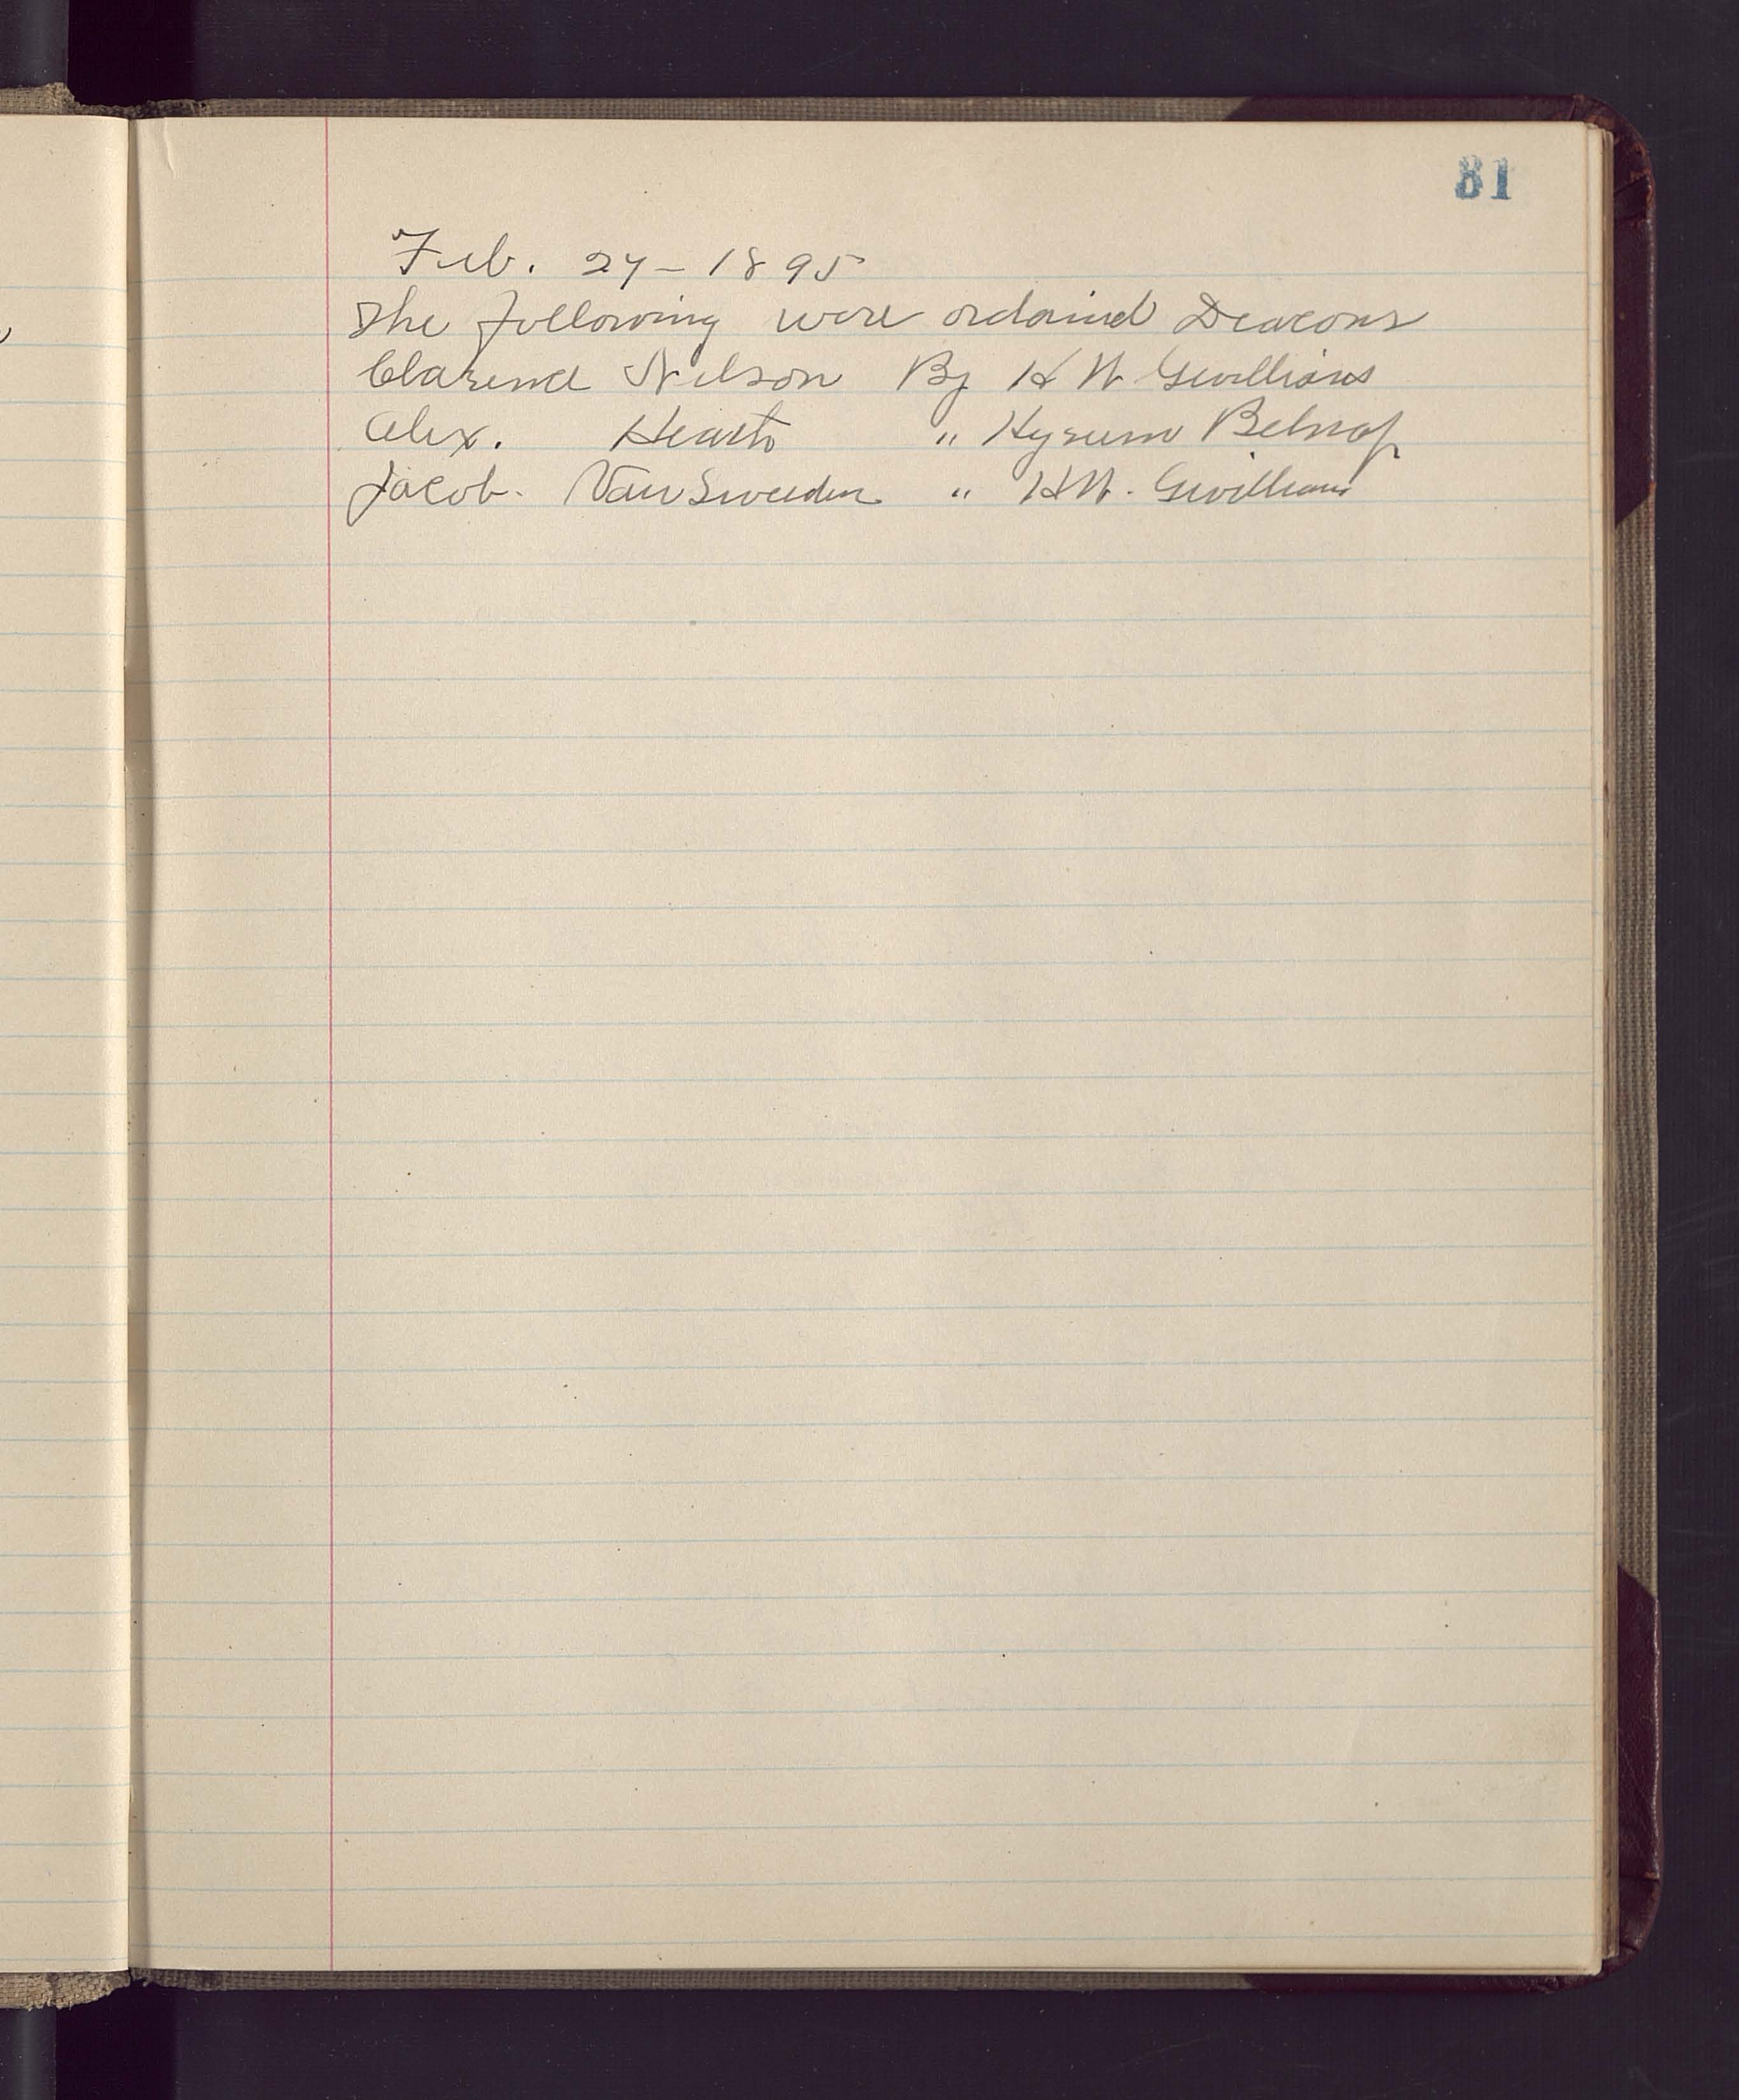 81
Feb. 24-1895
The following were ordained Deacons
Clarence Nelson By H W Gwilliams
Alex. " Hyrum Belnap
Jacob. Van Sweeden " H W. Gwilliams